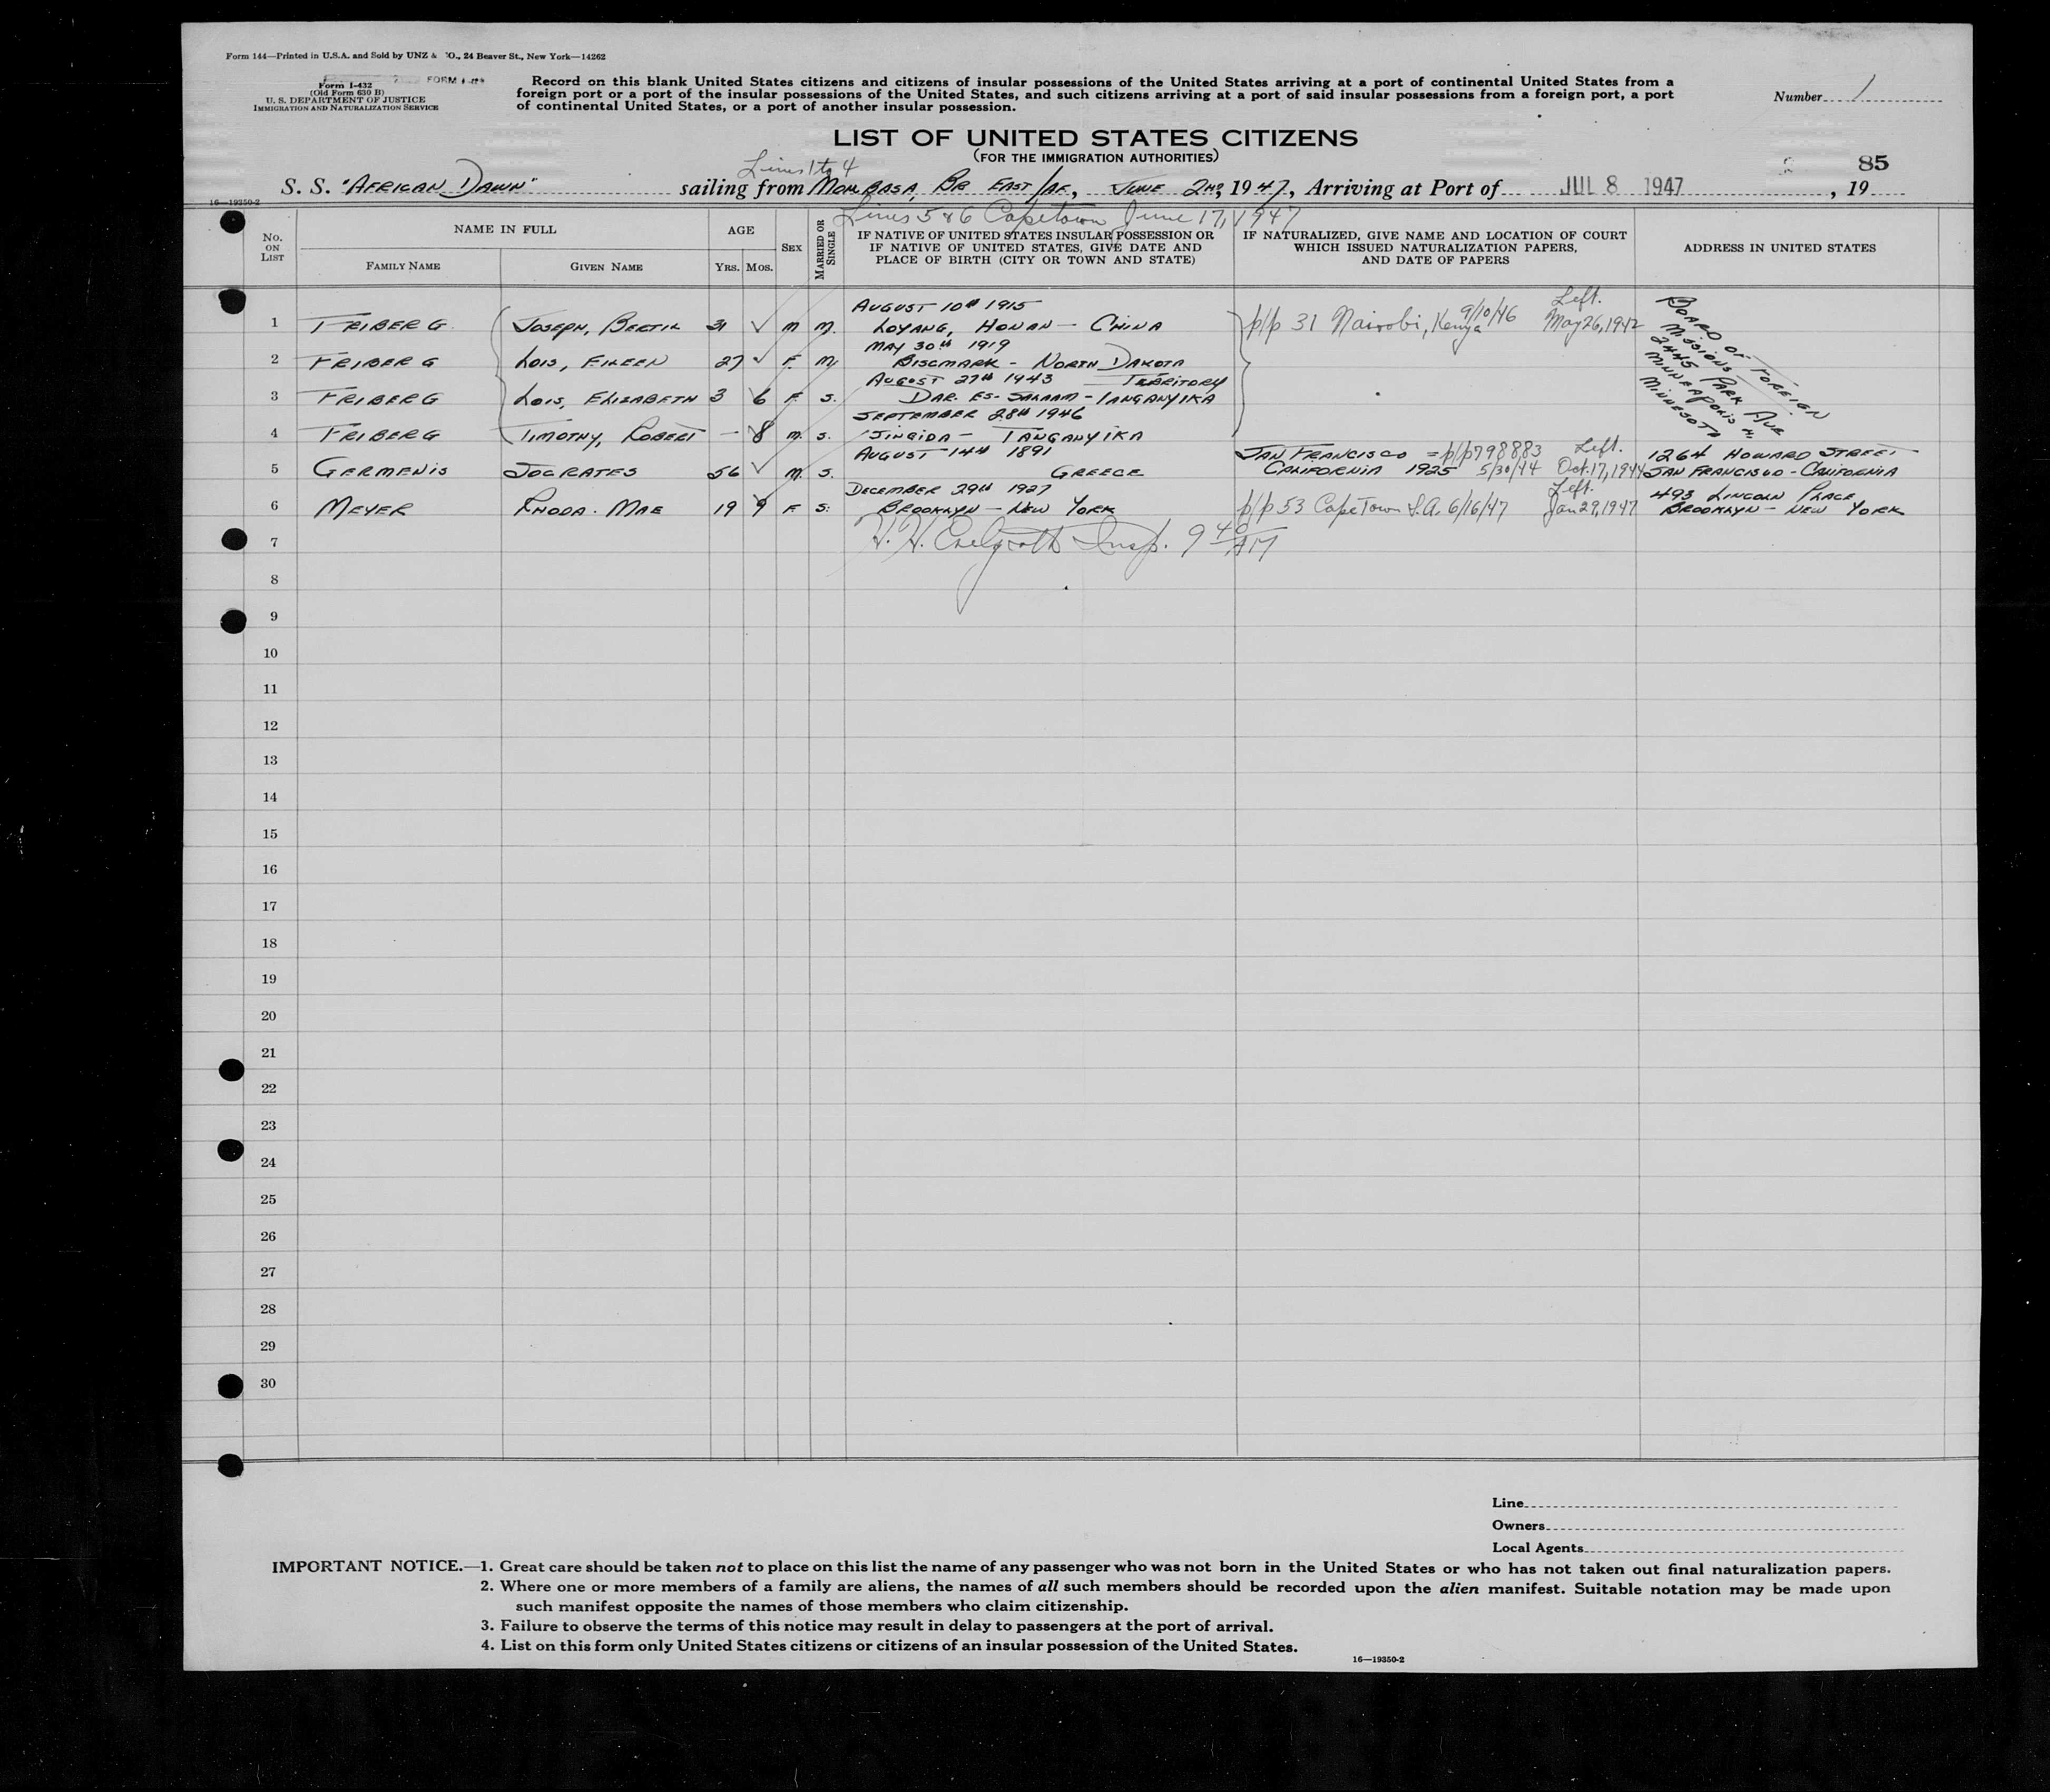 Form 144—Printed in U.S.A. and Sold by UNZ & CO., 24 Beaver St., New York—14262
Form I-432
(Old Form 630 B)
U. S. DEPARTMENT OF JUSTICE
IMMIGRATION AND NATURALIZATION SERVICE
FORM
Record on this blank United States citizens and citizens of insular possessions of the United States arriving at a port of continental United States from a
foreign port or a port of the insular possessions of the United States, and such citizens arriving at a port of said insular possessions from a foreign port, a port
of continental United States, or a port of another insular possession.
Number 1
LIST OF UNITED STATES CITIZENS
(FOR THE IMMIGRATION AUTHORITIES)
Lines 1 to 4
85
S. S. "AFRICAN DAWN" sailing from MOMBASA, BR EAST/AF., JUNE 2ND, 1947, Arriving at Port of JUL 8 1947, 19
16—19350-2
Lines 5 & 6 Capetown June 17, 1947
No. ON LIST
NAME IN FULL
FAMILY NAME
GIVEN NAME
AGE
YRS.
MOS.
SEX
MARRIED OR SINGLE
IF NATIVE OF UNITED STATES INSULAR POSSESSION OR
IF NATIVE OF UNITED STATES, GIVE DATE AND
PLACE OF BIRTH (CITY OR TOWN AND STATE)
IF NATURALIZED, GIVE NAME AND LOCATION OF COURT
WHICH ISSUED NATURALIZATION PAPERS,
AND DATE OF PAPERS
ADDRESS IN UNITED STATES
AUGUST 10TH 1915
1 FRIBERG JOSEPH, BERTIL 31 M M. LOYANG, HONAN - CHINA p/p 31 Nairobi, Kenya 9/10/46 Left. May 26, 1942
BOARD OF FOREIGN
MISSIONS
2445 PARK AVE
MINNEAPOLIS 4.
MINNESOTA
MAY 30TH 1919
2 FRIBERG LOIS, EILEEN 27 F. M. BISCMARK - NORTH DAKOTA
AUGUST 27TH 1943 TERRITORY
3 FRIBERG LOIS, ELIZABETH 3 6 F S. DAR. ES-SALAAM - TANGANYIKA
SEPTEMBER 28TH 1946
4 FRIBERG TIMOTHY, ROBERT - 8 M. S. SINGIDA - TANGANYIKA
AUGUST 14TH 1891 SAN FRANCISCO = p/p 798883 Left. 1264 HOWARD STREET
5 GERMENIS SOCRATES 56 M. S. GREECE CALIFORNIA 1925 5/30/44 Oct. 17, 1944 SAN FRANCISCO - CALIFORNIA
DECEMBER 29TH 1927 Left. 493 LINCOLN PLACE
6 MEYER RHODA. MAE 19 9 F S. BROOKLYN - NEW YORK p/p 53 CapeTown S.A. 6/16/47 Jan 29, 1947 BROOKLYN - NEW YORK
7 Insp. 9 40 AM
8
9
10
11
12
13
14
15
16
17
18
19
20
21
22
23
24
25
26
27
28
29
30
Line
Owners
Local Agents
IMPORTANT NOTICE.—1. Great care should be taken not to place on this list the name of any passenger who was not born in the United States or who has not taken out final naturalization papers.
2. Where one or more members of a family are aliens, the names of all such members should be recorded upon the alien manifest. Suitable notation may be made upon
such manifest opposite the names of those members who claim citizenship.
3. Failure to observe the terms of this notice may result in delay to passengers at the port of arrival.
4. List on this form only United States citizens or citizens of an insular possession of the United States.
16—19350-2